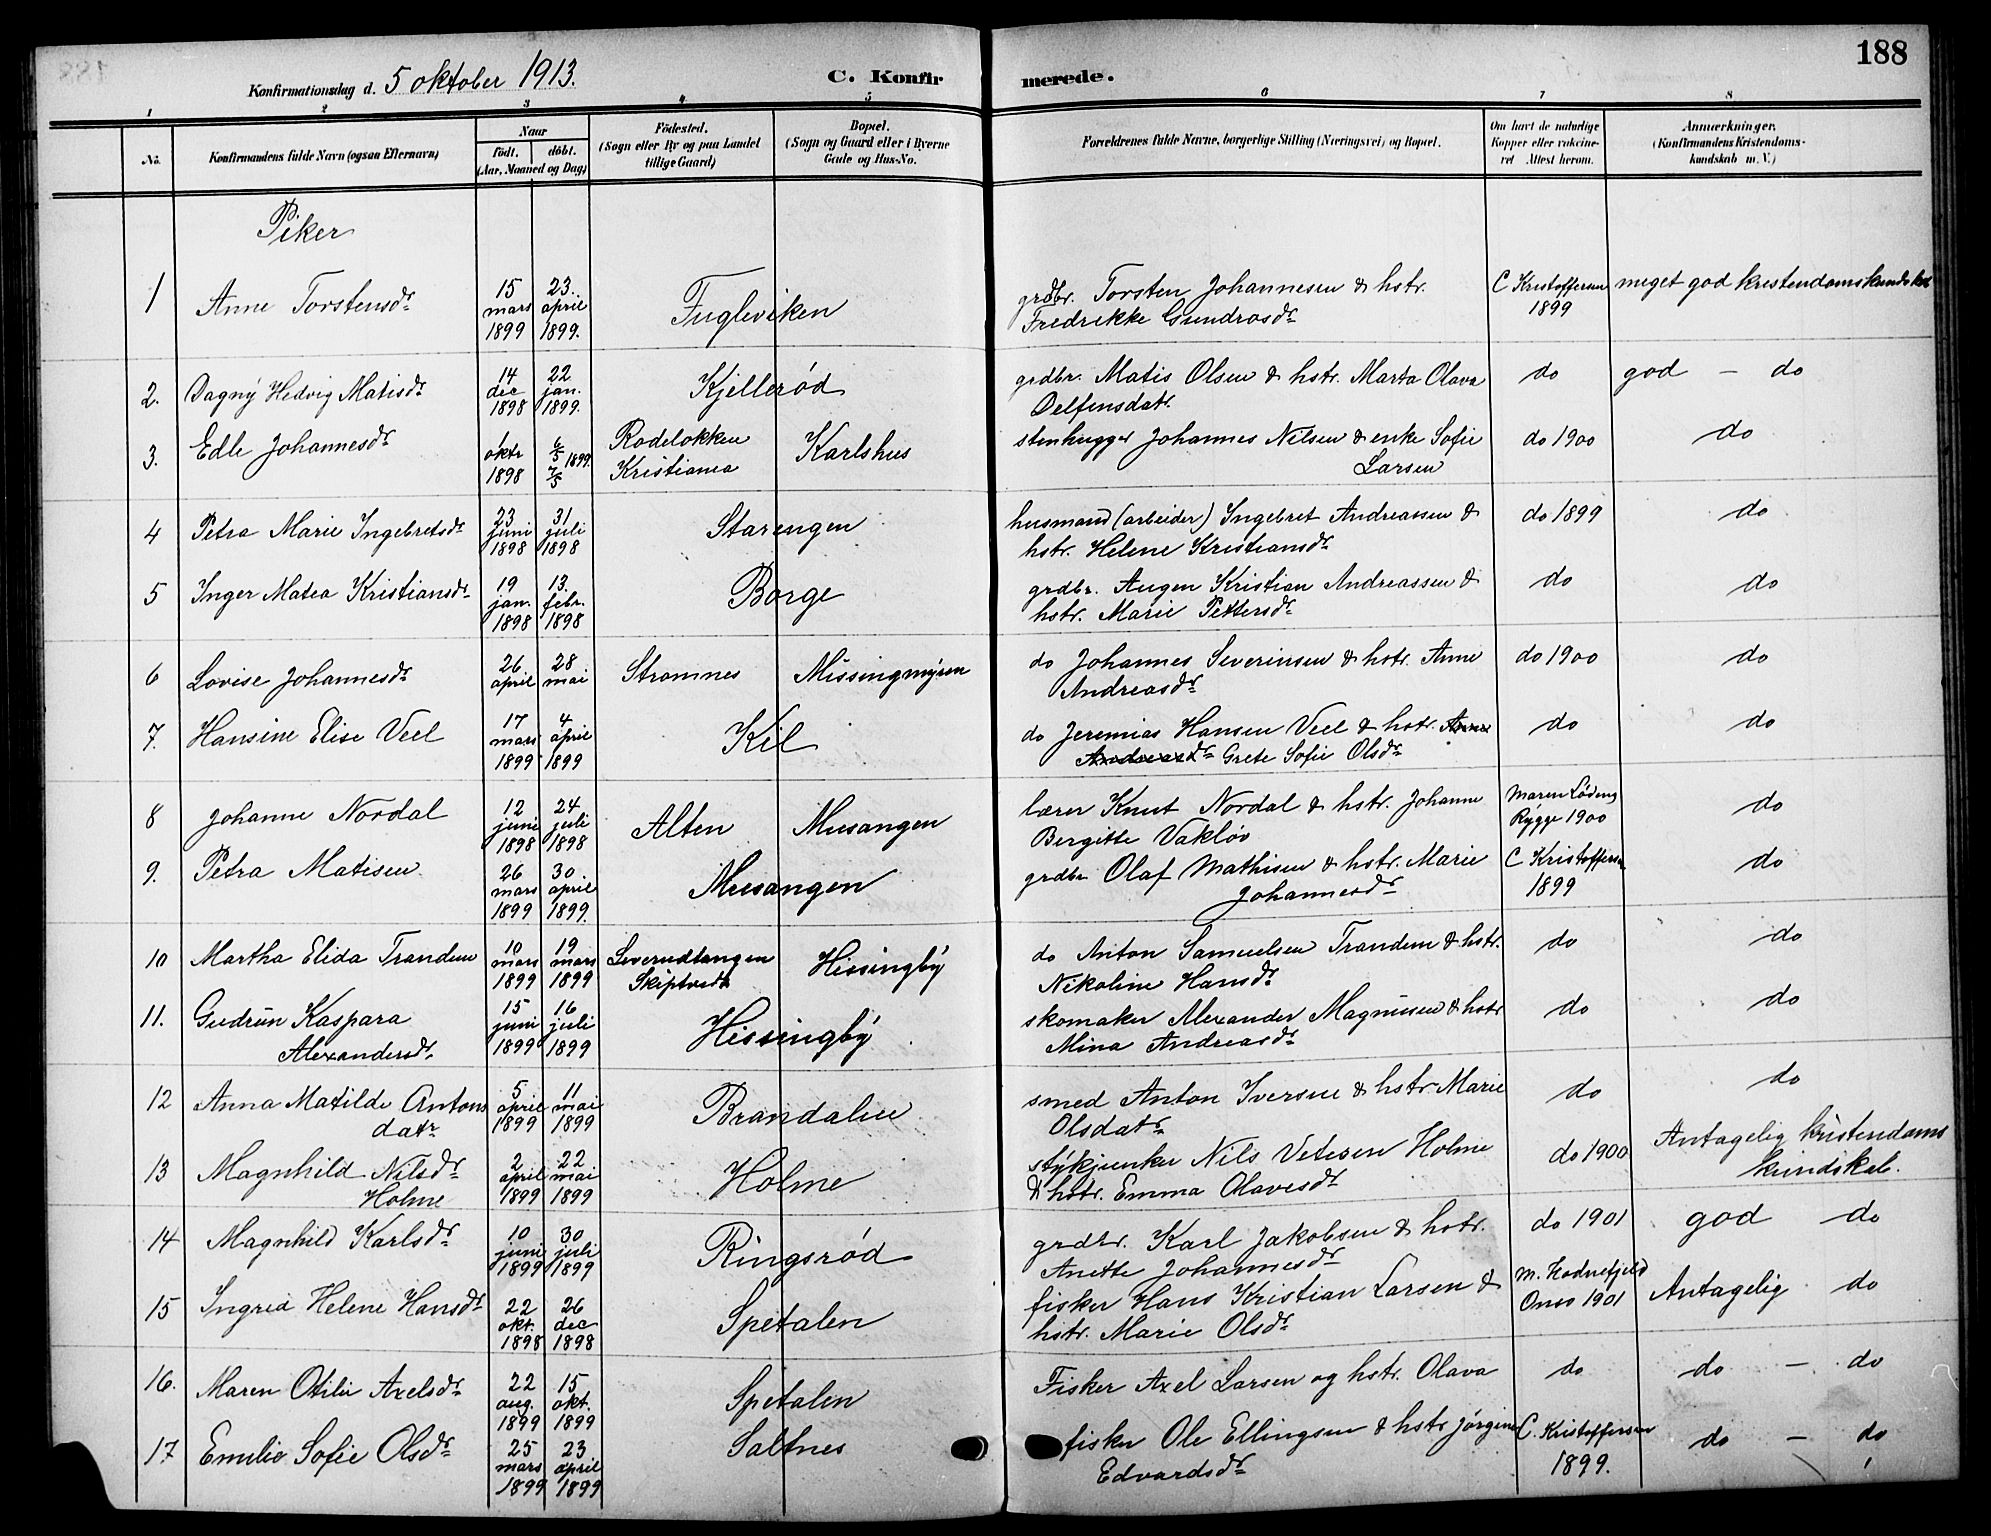 188
Konfirmationsdag d. 5 oktober 1913.
C. Konfirmerede.
1 2 3 4 5 6 7 8
No.
Konfirmandens fulde Navn (ogsaa Efternavn)
Naar
födt. döbt.
(Aar, Maaned og Dag)
Födested.
(Sogn eller By og paa Landet
tillige Gaard)
Bopæl.
(Sogn og Gaard eller i Byerne
Gade og Hus-No.
Forældrenes fulde Navne, borgerlige Stilling (Næringsvei) og Bopæl.
Om havt de naturlige
Kopper eller vakcine-
ret Attest herom.
Anmærkninger.
(Konfirmandens Kristendoms-
kundskab m. V.)
Piker
1 Anne Torstensdr 15 mars 1899 23. april 1899. Fugleviken grdbr. Torsten Johannesen & hstr. C Kristoffersen 1899 meget god kristendomskundskab
Fredrikke Gundrosdr
2. Dagny Hedvig Matisdr 14 dec 1898 22 jan. 1899. Kjellerød grdbr. Matis Olsen & hstr. Marta Olava do god – do
Delfensdatr.
3. Edle Johannesdr 1 oktr 1898 6/5 7/5 1899. Rodeløkken Karlshus stenhugger Johannes Nilsen & enke Sofie do 1900 do
Kristiania Larsen
4 Petra Marie Ingebretsdr 23 juni 1898 31 juli 1898 Starengen husmand (arbeider) Ingebret Andreassen & do 1899 do
hstr. Helene Kristiansdr
5 Inger Matea Kristiansdr 19 jan. 1898 13. febr. 1898 Borge grdbr. Augen Kristian Andreassen & do do
hstr. Marie Pettersdr
6 Lovise Johannesdr 26 april 28 mai Stromnes Missingmyren do Johannes Severinsen & hstr. Anne do 1900 do
Andreasdr
7. Hansine Elise Veel 17 mars 1899 4 april 1899 Kil do Jeremias Hansen Veel & hstr. Anne do do
Andreasdr Grete Sofie Olsdr
8 Johanne Nordal 12 juni 1898 24 juli 1898 Alten Musangen lærer Knut Nordal & hstr. Johanne Maren Lødeng do
Bergitte Vakløv Rygge 1900
9. Petra Matisen 26 mars 1899 30. april 1899. Musangen grdbr Olaf Mathisen & hstr. Marie C Kristoffersen 1899 do
Johannesdr
10 Martha Elida Trandem 10 mars 1899 19 mars 1899 Leverudtangen Hissingby do Anton Samuelsen Trandem & hstr. do do
Skiptvedt Nikoline Hansdr
11. Gudrun Kaspara 15 juni 1899 16 juli 1899 Hissingby skomaker Alexander Magnusen & hstr do do
Alexandersdr. Mina Andreasdr
12 Anna Matilde Antons 5 april 1899 11 mai 1899 Brandalen smed Anton Iversen & hstr Marie do do
datr Olsdatr
13 Magnhild Nilsdr 2 april 1899 22 mai 1899 Holme stykjunker Nils Vetesen Holme do 1900 Antagelig kristendoms
Holme & hstr. Emma Olavesdr kundskab.
14 Magnhild Karlsdr 10 juni 1899 30 juli 1899 Ringsrød grdbr. Karl Jakobsen & hstr. do 1901 god do
Anette Johannesdr
15 Ingrid Helene Hansdr 22 okt. 1898 26 dec 1898 Spetalen fisker Hans Kristian Larsen & M. Hodnefjeld Antagelig do
hstr. Marie Olsdr Onsø 1901
16. Maren Otilie Axelsdr 22 aug. 1899 15 okt. 1899 Spetalen Fisker Axel Larsen og hstr. Olava do do – do
17. Emilie Sofie Olsdr 25 mars 1899 23. april 1899 Saltnes fisker Ole Ellingsen & hstr Jørgine C. Kristoffersen 1899. do – do
Edvardsdr